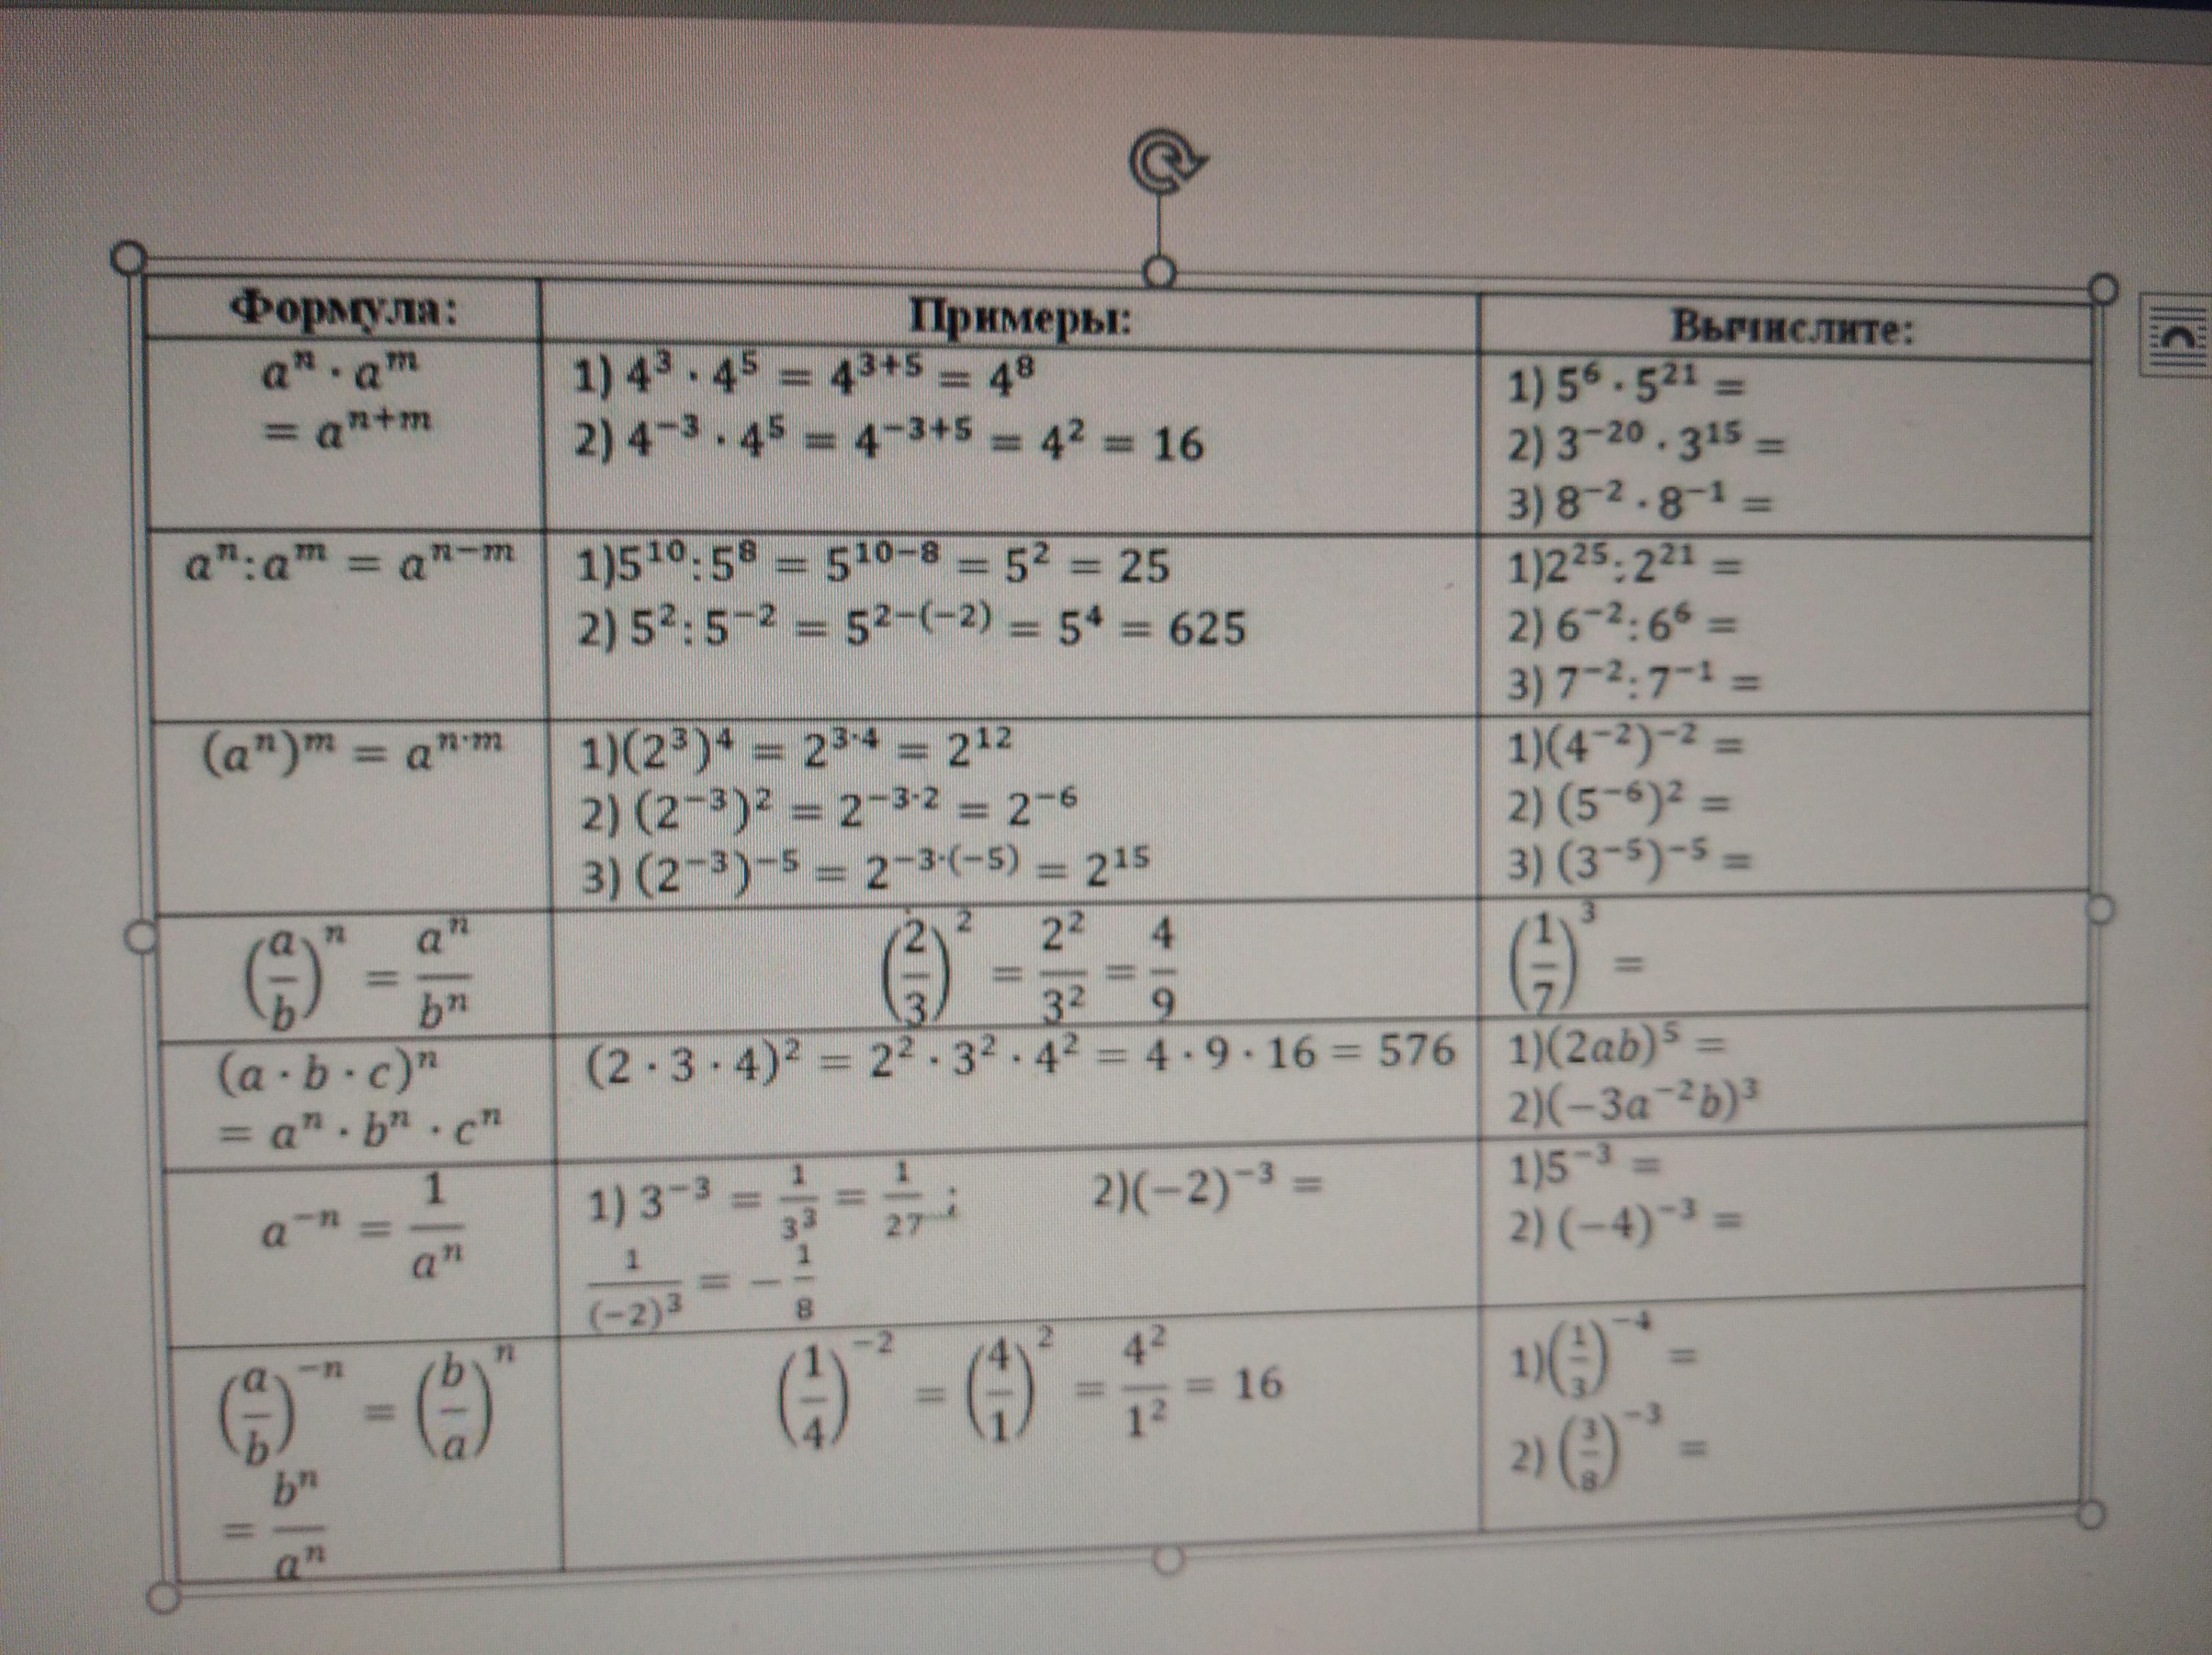 Формула: Примеры: Вычислите:
aⁿ · aᵐ
= aⁿ⁺ᵐ
1) 4³ · 4⁵ = 4³⁺⁵ = 4⁸
2) 4⁻³ · 4⁵ = 4⁻³⁺⁵ = 4² = 16
1) 5⁶ · 5²¹ =
2) 3⁻²⁰ · 3¹⁵ =
3) 8⁻² · 8⁻¹ =
aⁿ:aᵐ = aⁿ⁻ᵐ
1)5¹⁰:5⁸ = 5¹⁰⁻⁸ = 5² = 25
2) 5²:5⁻² = 5²⁻⁽⁻²⁾ = 5⁴ = 625
1)2²⁵:2²¹ =
2) 6⁻²:6⁶ =
3) 7⁻²:7⁻¹ =
(aⁿ)ᵐ = a^(n·m)
1)(2³)⁴ = 2^(3·4) = 2¹²
2) (2⁻³)² = 2^(−3·2) = 2⁻⁶
3) (2⁻³)⁻⁵ = 2^(−3·(−5)) = 2¹⁵
1)(4⁻²)⁻² =
2) (5⁻⁶)² =
3) (3⁻⁵)⁻⁵ =
(a/b)ⁿ = aⁿ/bⁿ
(2/3)² = 2²/3² = 4/9
(1/7)³ =
(a · b · c)ⁿ
= aⁿ · bⁿ · cⁿ
(2 · 3 · 4)² = 2² · 3² · 4² = 4 · 9 · 16 = 576
1)(2ab)⁵ =
2)(−3a⁻²b)³
a⁻ⁿ = 1/aⁿ
1) 3⁻³ = 1/3³ = 1/27 ; 2)(−2)⁻³ =
1/(−2)³ = −1/8
1)5⁻³ =
2) (−4)⁻³ =
(a/b)⁻ⁿ = (b/a)ⁿ
= bⁿ/aⁿ
(1/4)⁻² = (4/1)² = 4²/1² = 16
1)(1/3)⁻⁴ =
2) (3/8)⁻³ =